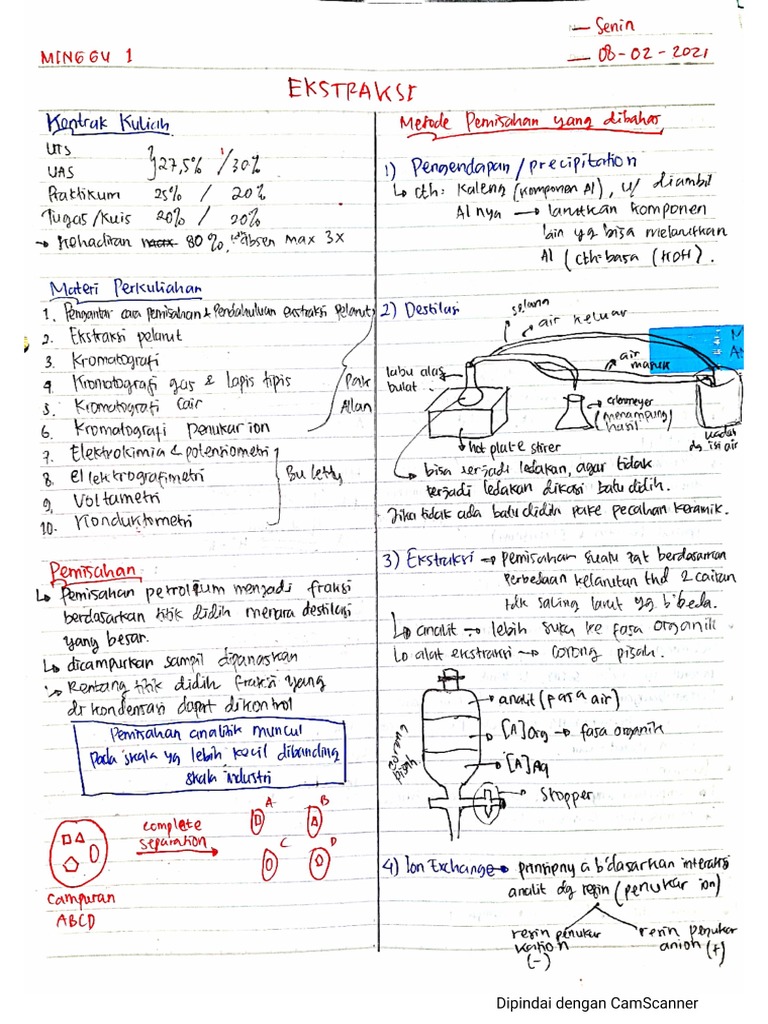 Senin
MINGGU 1
08-02-2021
EKSTRAKSI
Kontrak Kuliah
UTS
UAS
27,5% / 30%
Praktikum 25% / 20%
Tugas/Kuis 20% / 20%
→ Kehadiran 80%, absen max 3x
Materi Perkuliahan
1. Pengantar cara pemisahan & Pendahuluan ekstraksi pelarut
2. Ekstraksi pelarut
3. Kromatografi
4. Kromatografi gas & lapis tipis
5. Kromatografi Cair
6. Kromatografi penukar ion
Pak
Allan
7. Elektrokimia & potensiometri
8. ellektrografimetri
9. Voltametri
10. Konduktometri
Bu Letty
Pemisahan
↳ Pemisahan petroleum menjadi fraksi
berdasarkan titik didih menara destilasi
yang besar.
↳ dicampurkan sampil dipanaskan
↳ Rentang titik didih fraksi yang
di kondensasi dapat dikontrol
Pemisahan analitik muncul
Pada skala yg lebih kecil dibanding
skala industri
complete
separation
A
B
C
D
campuran
ABCD
Metode Pemisahan yang dibahas
1) Pengendapan / precipitation
↳ cth: Kaleng (komponen Al), u/ diambil
Al nya → larutkan komponen
lain yg bisa melarutkan
Al (cth: basa (KOH).
2) Destilasi
selang
air keluar
air
masuk
labu alas
bulat
erlenmeyer
(menampung
hasil)
wadah
dg isi air
hot plate stirer
bisa terjadi ledakan, agar tidak
terjadi ledakan dikasi batu didih.
Jika tidak ada batu didih pake pecahan keramik.
3) Ekstraksi → pemisahan suatu zat berdasarkan
perbedaan kelarutan thd 2 cairan
tdk saling larut yg b'beda.
↳ analit → lebih suka ke fasa organik
↳ alat ekstraksi → corong pisah.
corong
pisah
analit (fasa air)
[A]org → fasa organik
[A]Aq
Stopper
4) Ion Exchange → prinsipnya b'dasarkan interaksi
analit dg resin (penukar ion)
resin penukar
kation
(-)
resin penukar
anion (+)
Dipindai dengan CamScanner